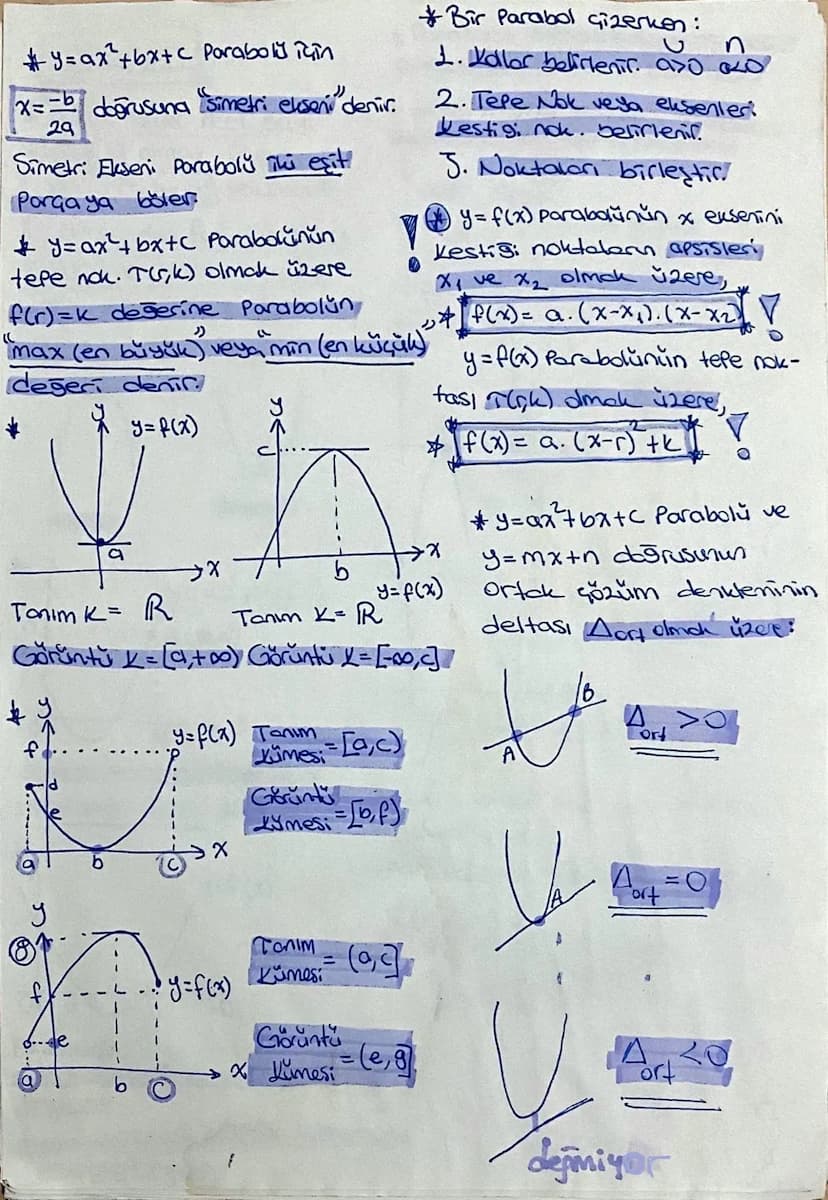 * y=ax²+bx+c Parabolü için
x=-b/2a doğrusuna "simetri ekseni" denir.
Simetri Ekseni Parabolü iki eşit
parçaya böler.
* y=ax²+bx+c Parabolünün
tepe nok. T(r,k) olmak üzere
f(r)=k değerine Parabolün
"max (en büyük)" veya "min (en küçük)"
değeri denir.
*
y
y=f(x)
a
x
Tanım K= R
Görüntü K=[a,+∞)
y
c
b
x
y=f(x)
Tanım K= R
Görüntü K=[-∞,c]
*
y
f
d
e
a
b
c
x
y=f(x)
Tanım
Kümesi =[a,c)
Görüntü
Kümesi =[b,f)
y
g
f
e
a
b
c
x
y=f(x)
Tanım
Kümesi = (a,c]
Görüntü
Kümesi = (e,g]
* Bir Parabol çizerken:
∪ ∩
1. Kollar belirlenir. a>0 a<0
2. Tepe Nok veya eksenleri
kestiği nok. belirlenir.
3. Noktaları birleştir.
! * y=f(x) parabolünün x eksenini
kestiği noktaların apsisleri
x₁ ve x₂ olmak üzere,
* f(x)= a.(x-x₁).(x-x₂) !
y=f(x) Parabolünün tepe nok-
tası T(r,k) olmak üzere,
* f(x)= a.(x-r)²+k !
* y=ax²+bx+c Parabolü ve
y=mx+n doğrusunun
Ortak çözüm denkleminin
deltası Δort olmak üzere:
A
B
Δort >0
A
Δort =0
Δort <0
değmiyor